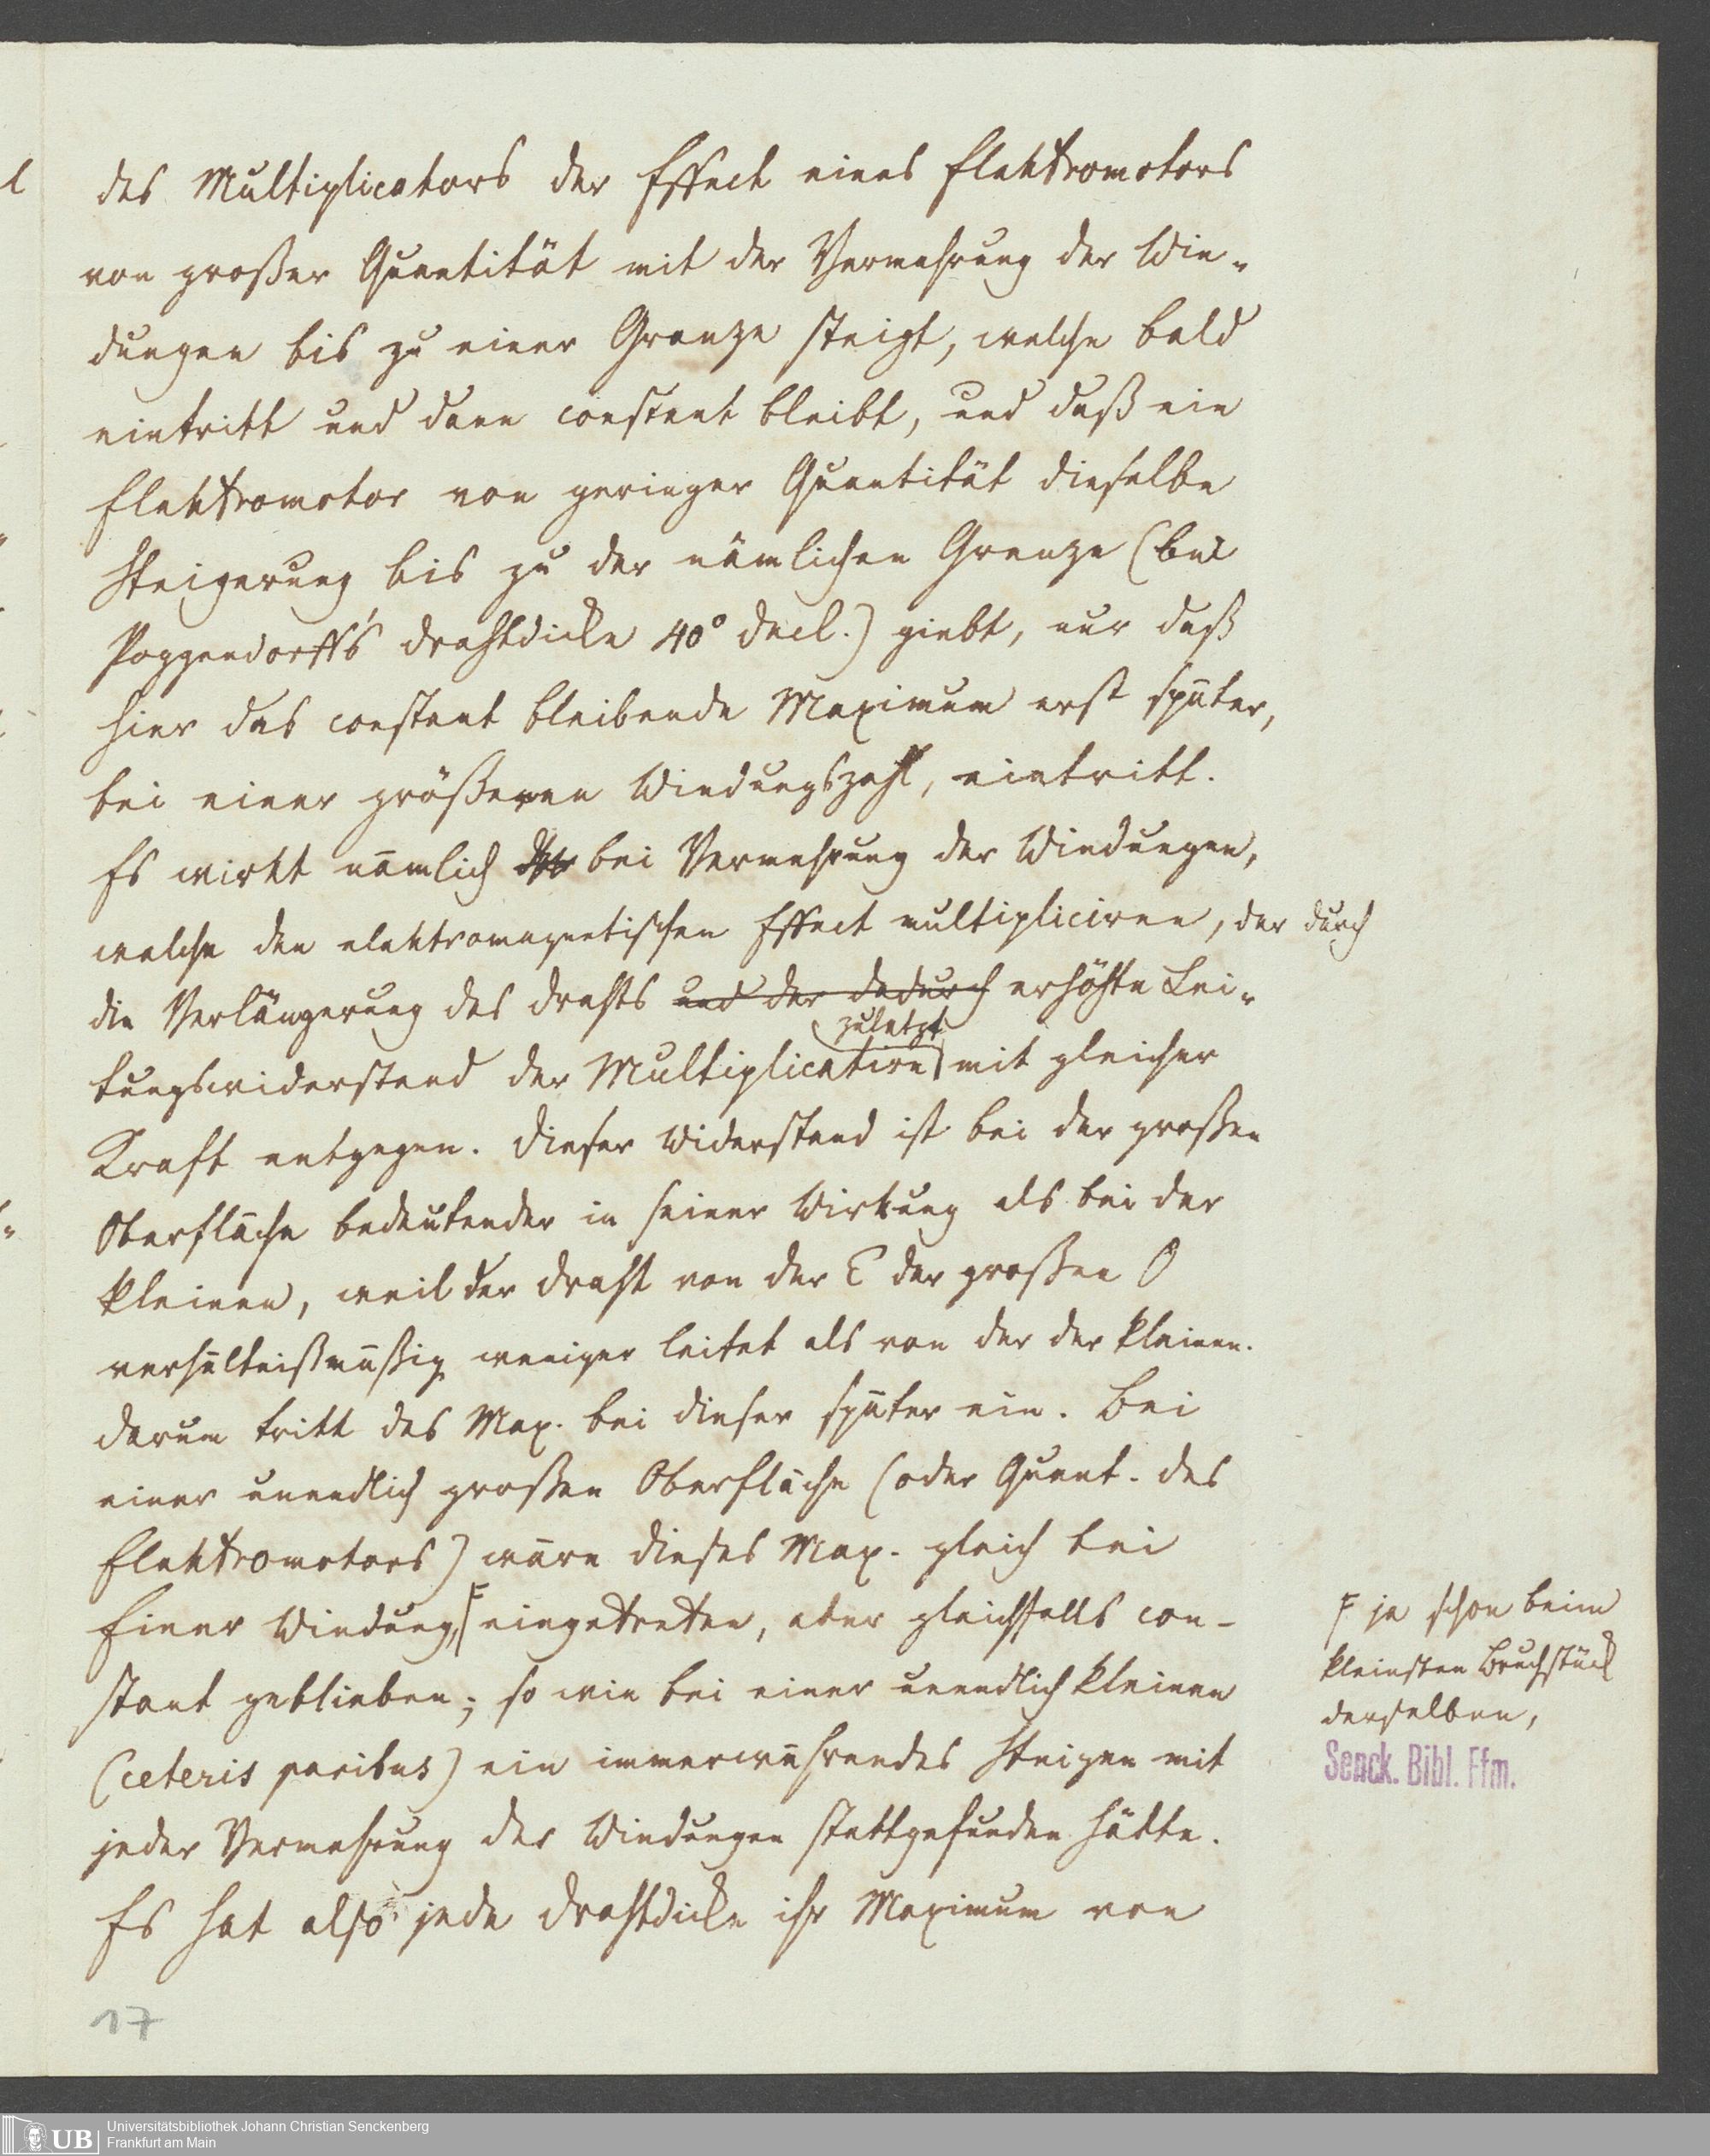 des Multiplicators der Effect eines Elektromotors
von großer Quantität mit der Vermehrung der Win-
dungen bis zu einer Granze steigt, welche bald
eintritt und dann constant bleibt, und daß ein
Elektromotor von geringer Quantität dieselbe
Steigerung bis zu der nämlichen Grenze (bei
Poggendorff's Drahtdicke 40° Decl.) giebt, nur daß
hier das constant bleibende Maximum erst später,
bei einer größeren Windungszahl, eintritt.
Es wirkt nämlich bei Vermehrung der Windungen,
welche den elektromagnetischen Effect multipliciren, der durch
die Verlängerung des Drahts und der dadurch erhöhte Lei-
zuletzt
tungswiderstand der Multiplication mit gleicher
Kraft entgegen. Dieser Widerstand ist bei der großen
Oberfläche bedeutender in seiner Wirkung als bei der
kleinen, weil der Draht von der E der großen O
verhältnißmäßig weniger leitet als von der der kleinen.
Darum tritt das Max. bei dieser später ein. Bei
einer unendlich großen Oberfläche (oder Quant. des
Elektromotors) wäre dieses Max. gleich bei
Einer Windung, F eingetreten, aber gleichfalls con-
stant geblieben; so wie bei einer unendlich kleinen
(ceteris paribus) ein immerwährendes Steigen mit
jeder Vermehrung der Windungen stattgefunden hätte.
Es hat also jede Drahtdicke ihr Maximum von
F ja schon beim
kleinsten Bruchstück
derselben,
Senck. Bibl. Ffm.
17
UB
Universitätsbibliothek Johann Christian Senckenberg
Frankfurt am Main